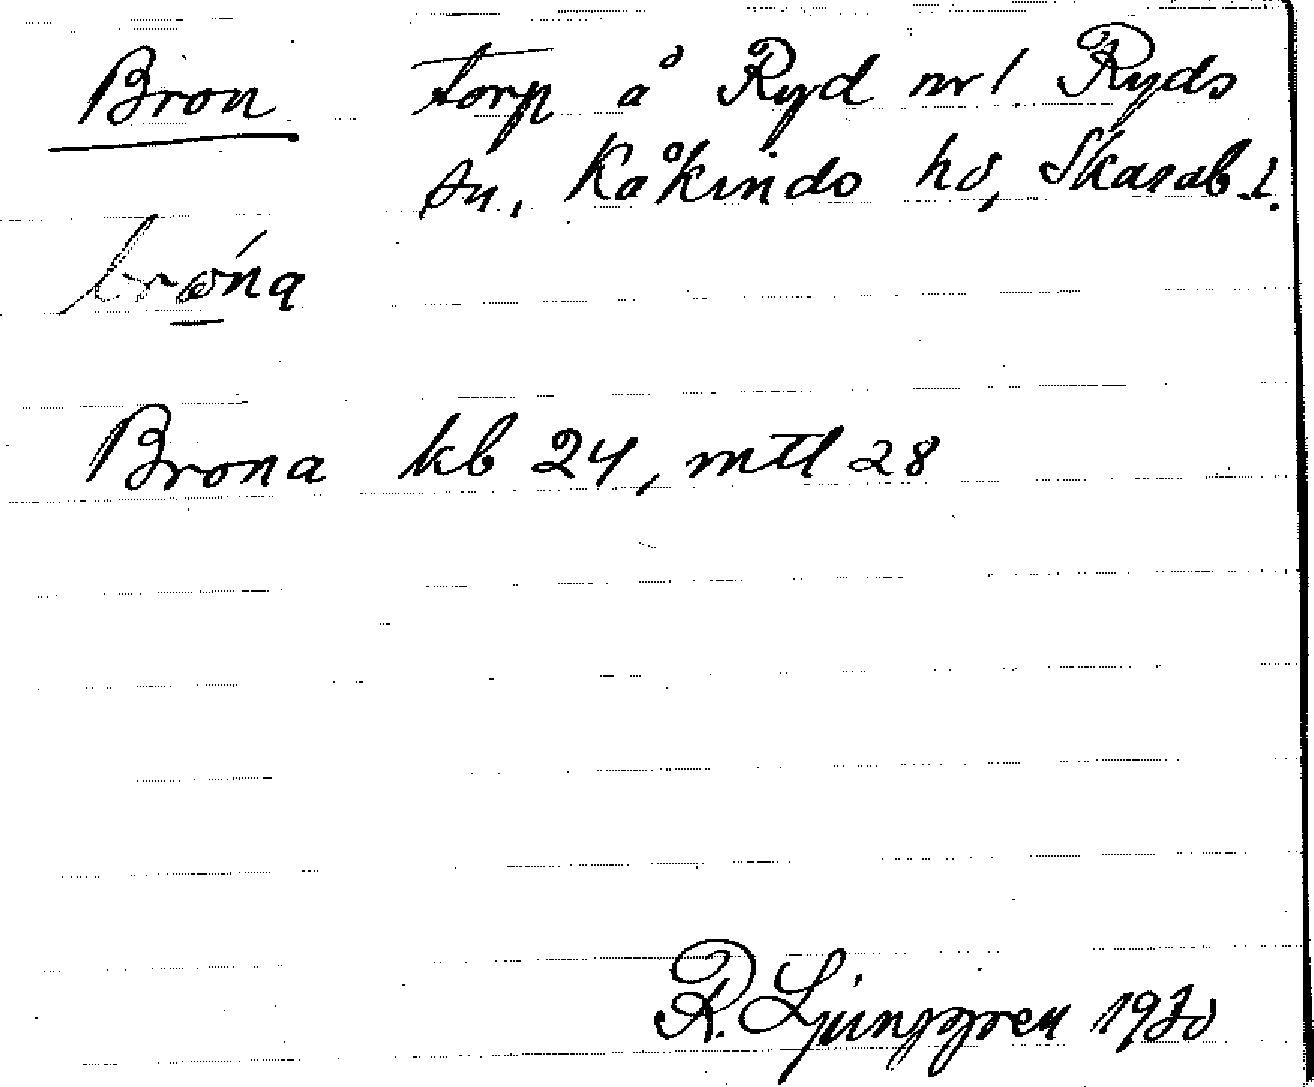 Bron torp å Ryd nr 1 Ryds
sn, Kåkinds hd, Skarab. l.
brǿna
Brona kb 24, mtl 28
R. Ljunggren 1930